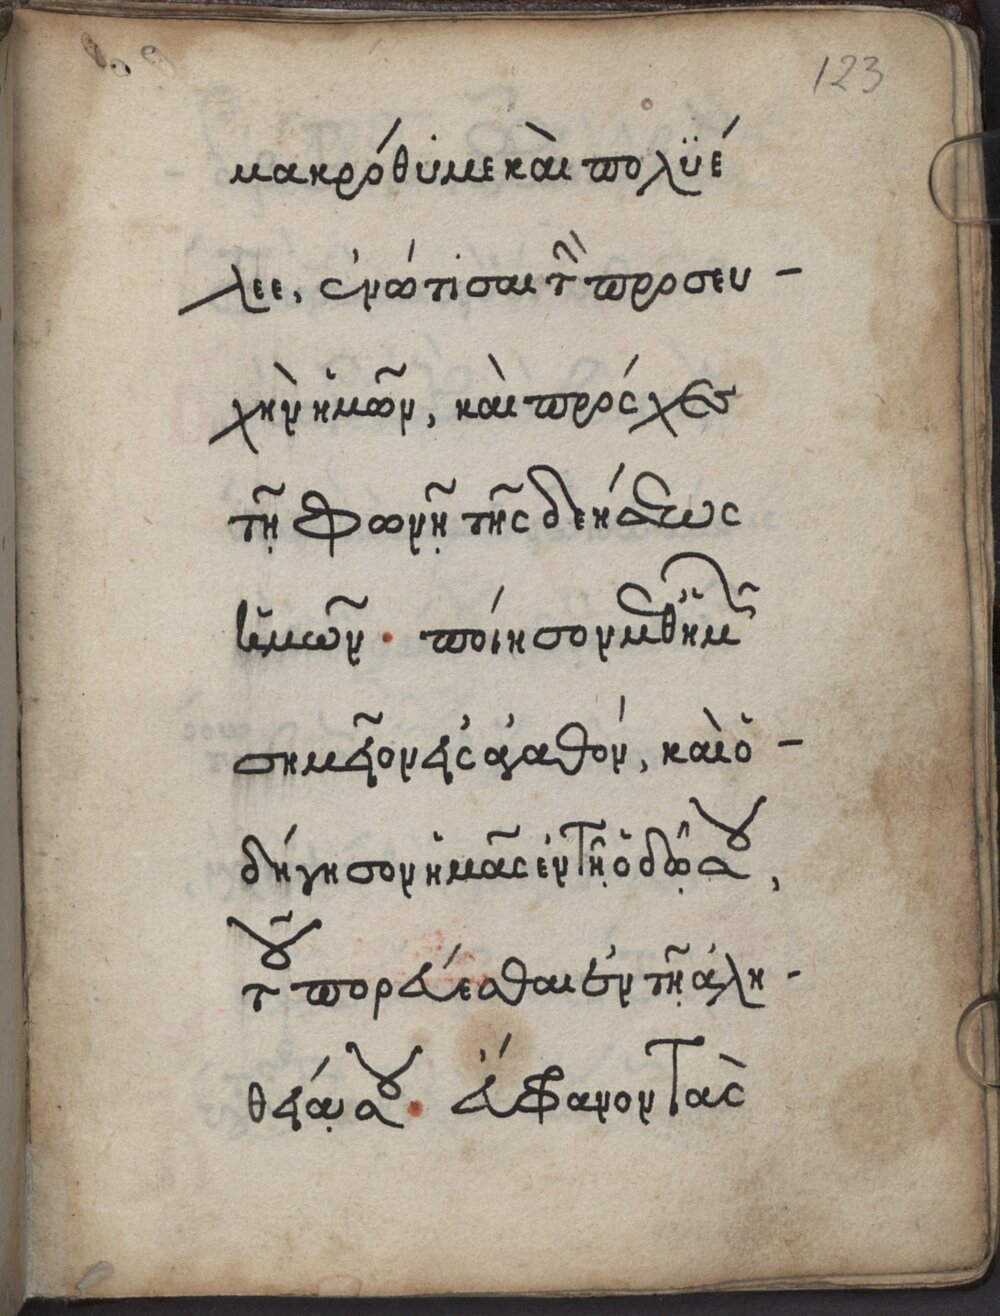 123
μακρόθυμε καὶ πολϋέ
λεε, ἐνώτισαι τὴν προσευ-
χὴν ἡμῶν, καὶ πρόσχες
τῇ φωνῇ τῆς δεήσεως
ἡμῶν· ποίησον μεθ ἡμῶν
σημεῖον εἰς ἀγαθόν, καὶ ὁ-
δήγησον ἡμᾶς ἐν τῇ ὁδῷ σου,
τοῦ πορεύεσθαι ἐν τῇ ἀλη-
θείᾳ σου· εὔφρανον τὰς